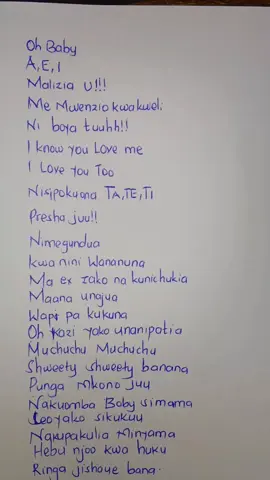 Oh Baby
A, E, I
Malizia U!!!
Me Mwenzio kwakweli
Ni boya tuuhh!!
I know you Love me
I Love you Too
Nisipokuona TA, TE, TI
Presha juu!!
Nimegundua
kwa nini Wananuna
Ma ex zako na kunichukia
Maana unajua
Wapi pa kukuna
Oh Kazi yako unanipatia
Muchuchu Muchuchu
Shweety shweety banana
Punga Mkono juu
Nakuomba Baby simama
Leo yako sikukuu
Nakupakulia Minyama
Hebu njoo kwa huku
Ringa jishaue bana.